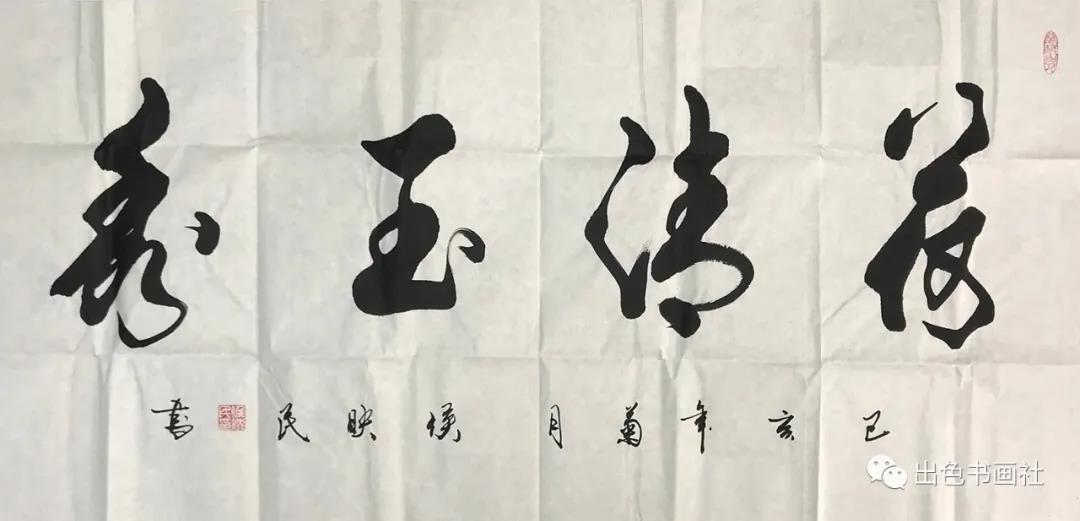 荷清玉秀
己亥年菊月侯映民书
出色书画社